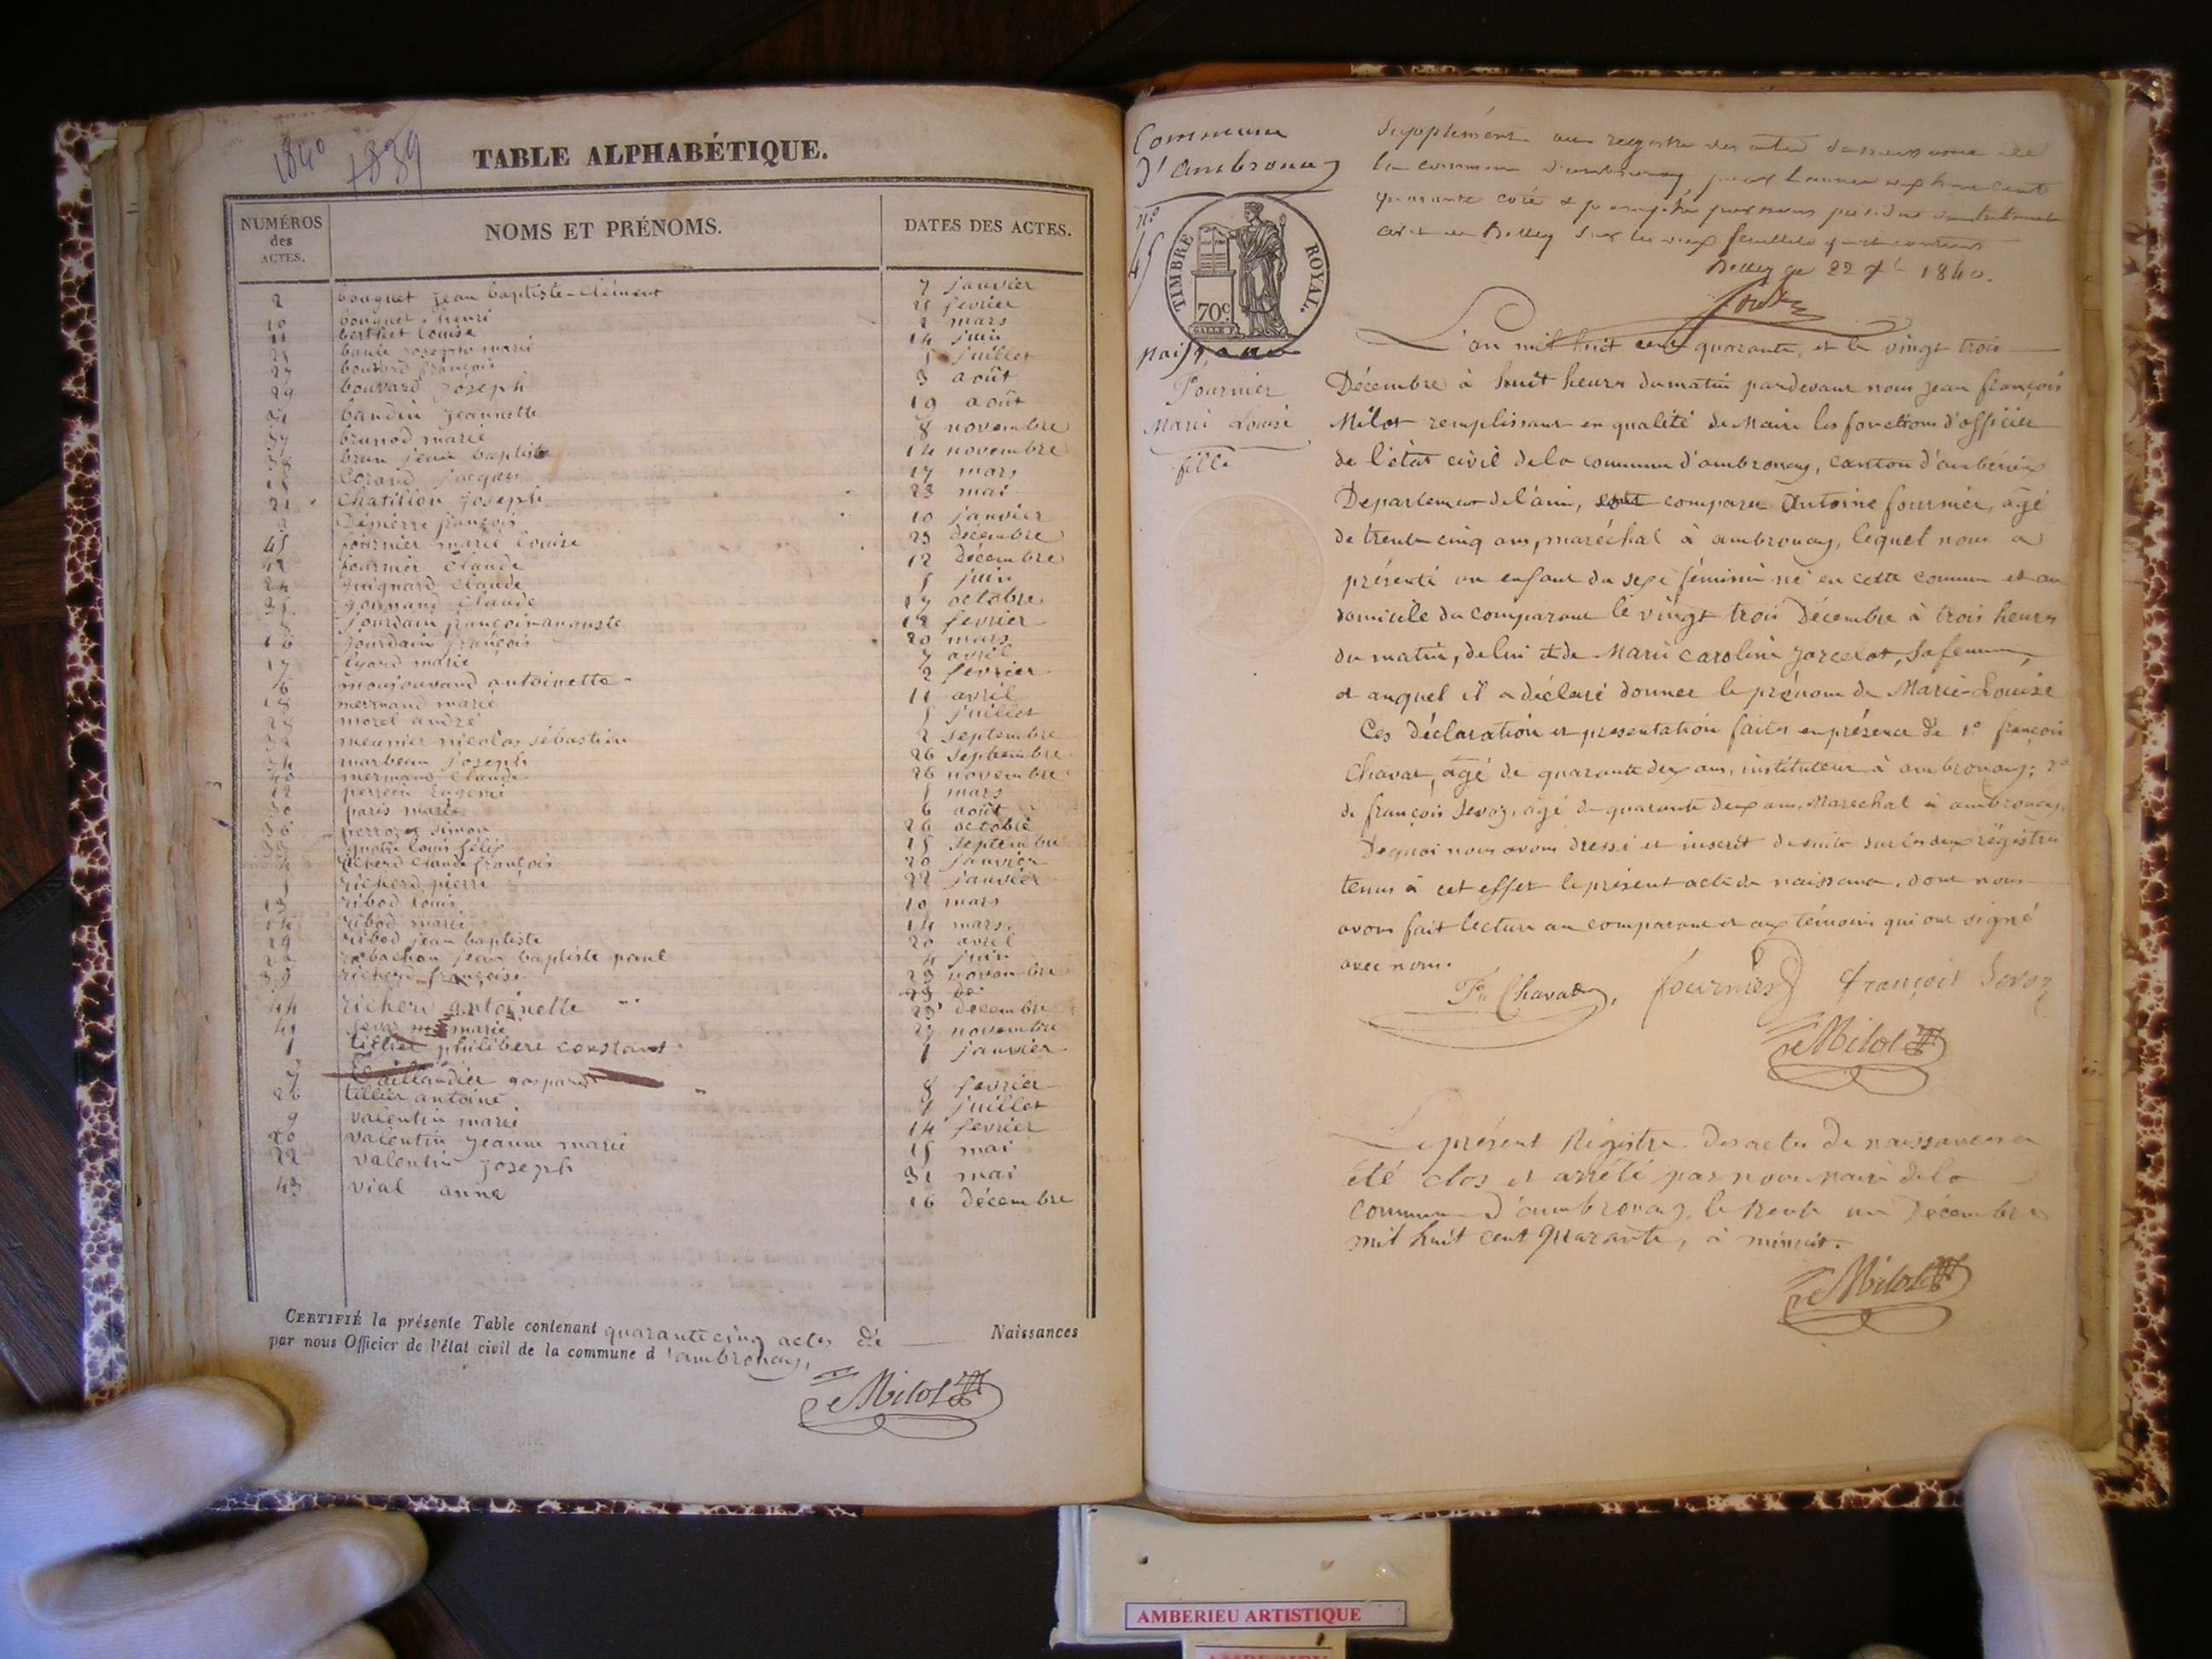 1840 1839
TABLE ALPHABÉTIQUE.
NUMÉROS des ACTES. NOMS ET PRÉNOMS. DATES DES ACTES.
2 bouquet jean baptiste-clément 7 janvier
10 bouquet henri fevrier
11 berthet louise mars
joseph marie 14 juin
27 bouvard françois juillet
29 bouvard joseph 3 août
31 baudin jeannette 19 août
37 brunod marie 8 novembre
38 brun jean baptiste 14 novembre
15 jacques 17 mars
21 chatillon joseph 23 mai
françois 10 janvier
45 fournier marie louise 23 décembre
42 fournier claude 12 décembre
24 guignard claude juin
35 gonnand claude octobre
jourdain françois-auguste 12 fevrier
16 jourdain françois 20 mars
17 marie 7 avril
6 antoinette 2 fevrier
18 mermand marie 11 avril
28 morel andré juillet
meunier nicolas sébastien 2 septembre
34 marbeau joseph 26 septembre
40 mermand claude 26 novembre
12 mars
30 paris marie 6 août
36 simon 26 octobre
louis félix 15 septembre
4 richerd claude françois 20 janvier
5 richerd pierre 22 janvier
13 ribod louis 10 mars
14 ribod marie 14 mars
19 ribod jean baptiste 20 avril
jean baptiste paul 4 juin
39 richerd françoise 23 novembre
44 richerd antoinette décembre
41 marie 27 novembre
1 philibert constant 1 janvier
7 Taillandier gaspard 8 fevrier
26 tillier antoine juillet
9 valentin marie 14 fevrier
20 valentin jeanne marie 15 mai
22 valentin joseph 31 mai
43 vial anne 16 décembre
CERTIFIÉ la présente Table contenant quarante cinq actes de Naissances
par nous Officier de l'état civil de la commune d'ambronay,
Milot
Commune
d'ambronay
n°
45
TIMBRE ROYAL.
70c
naissance
Fournier
Marie Louise
fille
Supplément au registre des actes de naissance de
la commune d'ambronay, pour l'année mil huit cent
quarante coté & paraphé par nous président du tribunal
civil de Belley sur les deux feuillets
Belley ce 22 1840.
L'an mil huit cent quarante, et le vingt trois
Décembre à huit heures du matin pardevant nous jean françois
Milot remplissant en qualité de Maire les fonctions d'officier
de l'état civil de la commune d'ambronay, canton d'ambérieu
Departement de l'ain, est comparu Antoine fournier, agé
de trente cinq ans, maréchal à ambronay, lequel nous a
présenté un enfant du sexe féminin né en cette commune et au
domicile du comparant le vingt trois Décembre à trois heures
du matin, de lui et de Marie caroline Jarcelot, sa femme,
et auquel il a déclaré donner le prénom de Marie-Louise
Ces déclaration et presentation faites en présence de 1° françois
Chavat, âgé de quarante deux ans, instituteur à ambronay; 2°
de françois Sevoz, agé de quarante deux ans, Marechal à ambronay,
De quoi nous avons dressé et inscrit de suite sur les deux régistres
tenus à cet effet le présent acte de naissance, dont nous
avons fait lecture au comparant et aux témoins qui ont signé
avec nous.
Chavat, fournier françois Sevoz
Milot
Le présent Régistre des actes de naissances a
été clos et arrêté par nous maire de la
commune d'ambronay, le trente un Décembre
mil huit cent quarante, à minuit.
Milot
AMBERIEU ARTISTIQUE